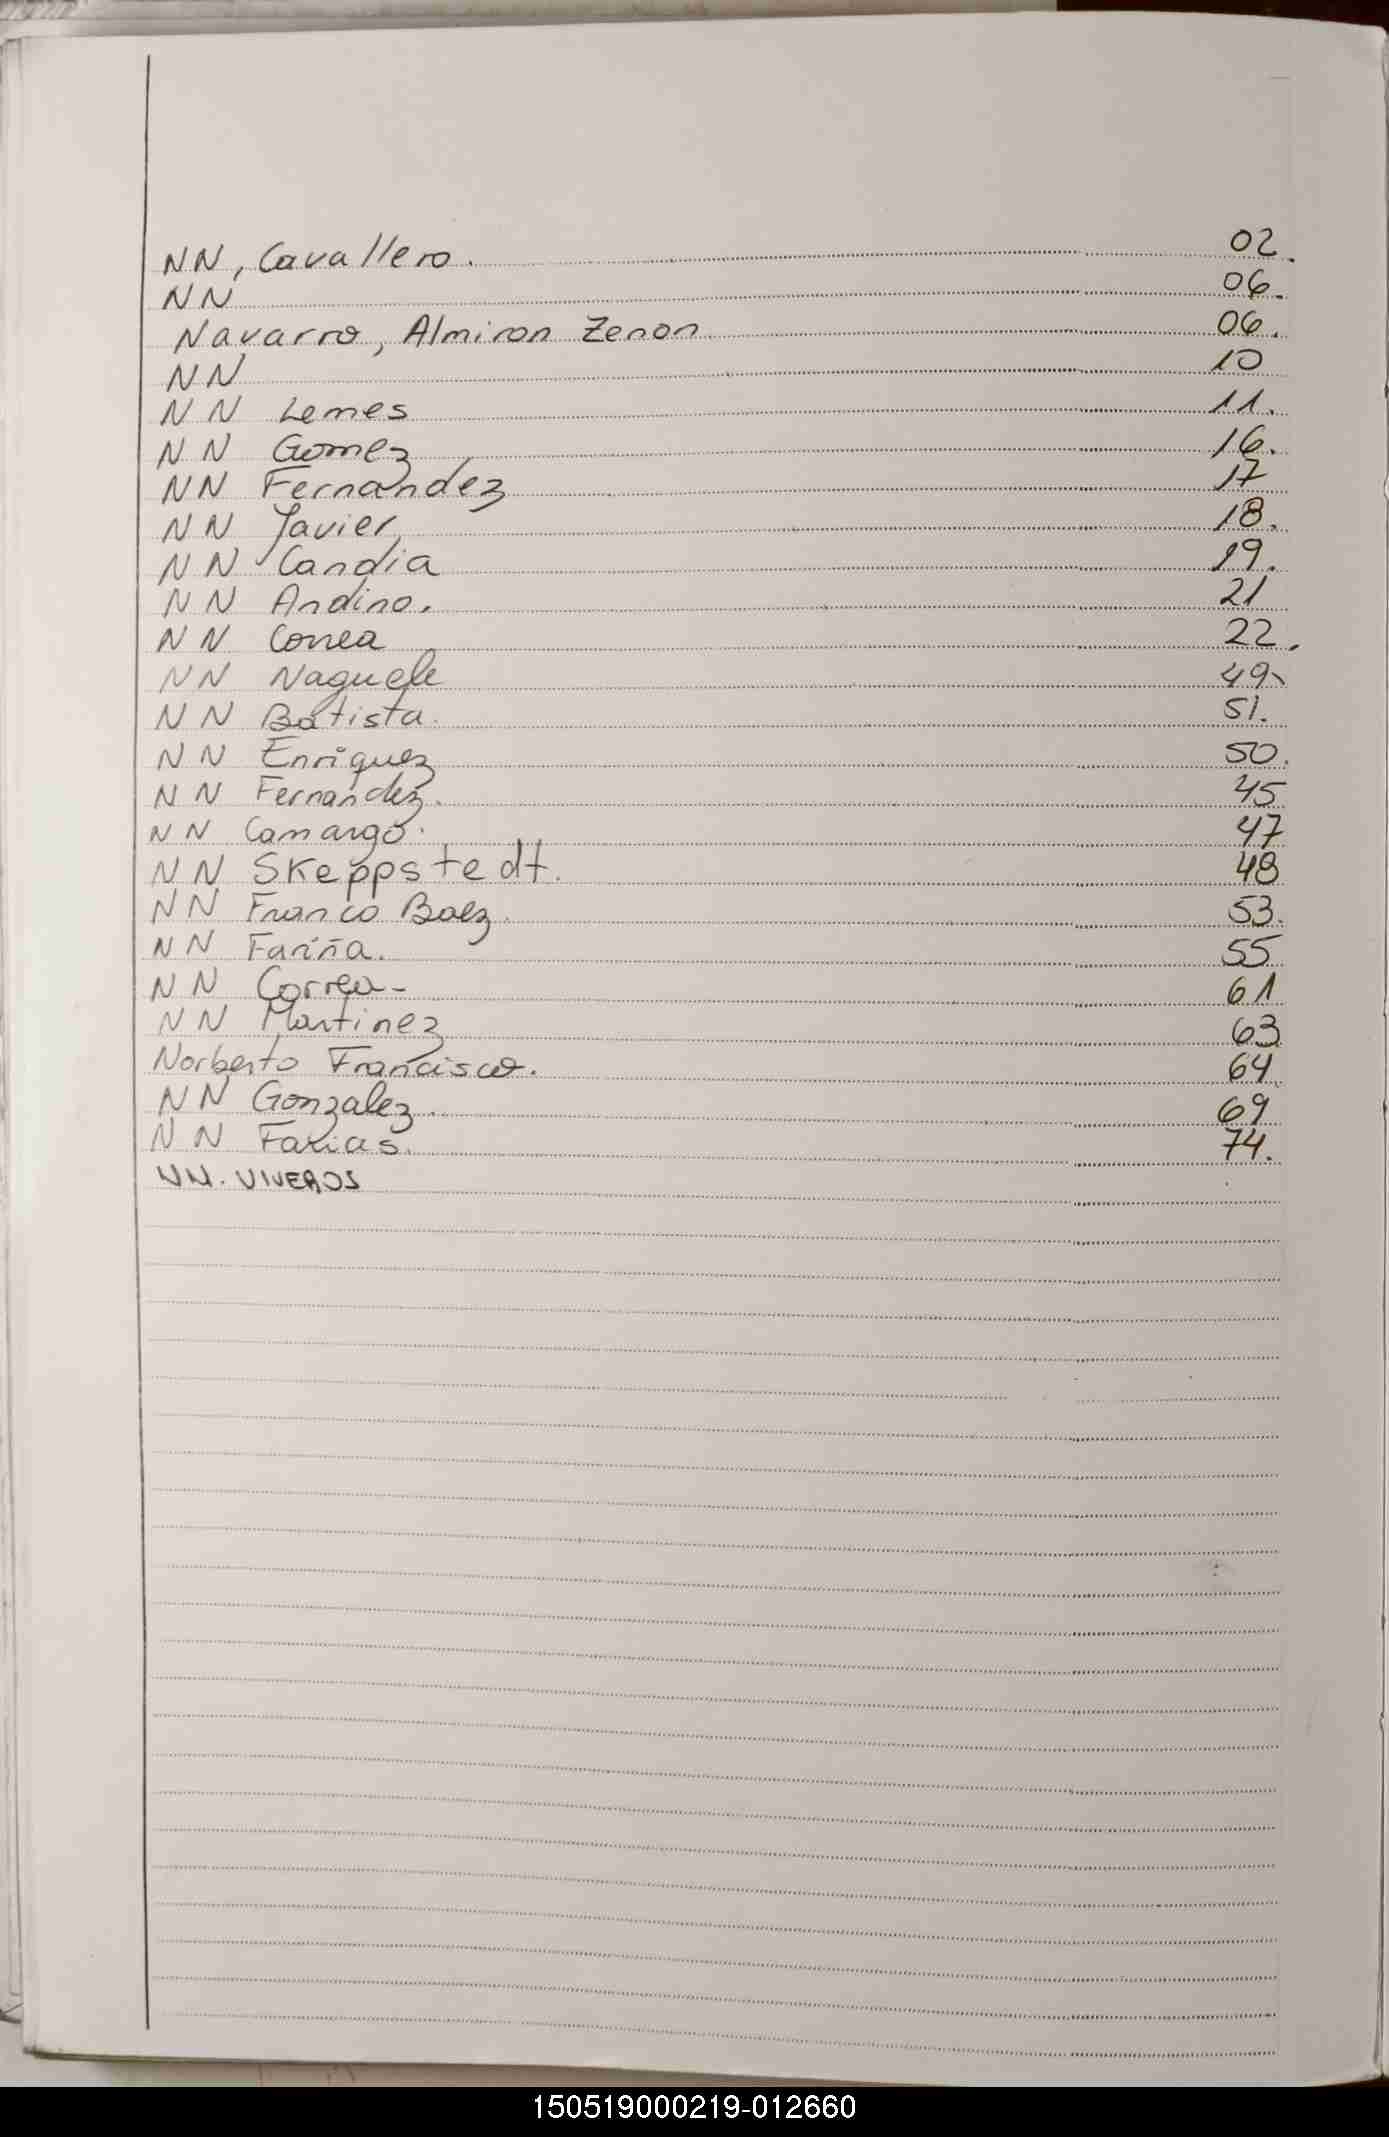 NN, Cavallero. 02.
NN 06.
Navarro, Almiron Zenon 06.
NN 10
NN Lemes 11.
NN Gomez 16.
NN Fernandez 17
NN Javier 18.
NN Candia 19.
NN Andino. 21
NN Correa 22.
NN Naguele 49.
NN Batista. 51.
NN Enriquez 50.
NN Fernandez. 45
NN Camargo. 47
NN Skeppstedt. 48
NN Franco Baez. 53.
NN Fariña. 55
NN Correa- 61
NN Martinez 63
Norberto Francisco. 64.
NN Gonzalez. 69
NN Farias. 74.
NN. VIVEROS
150519000219-012660